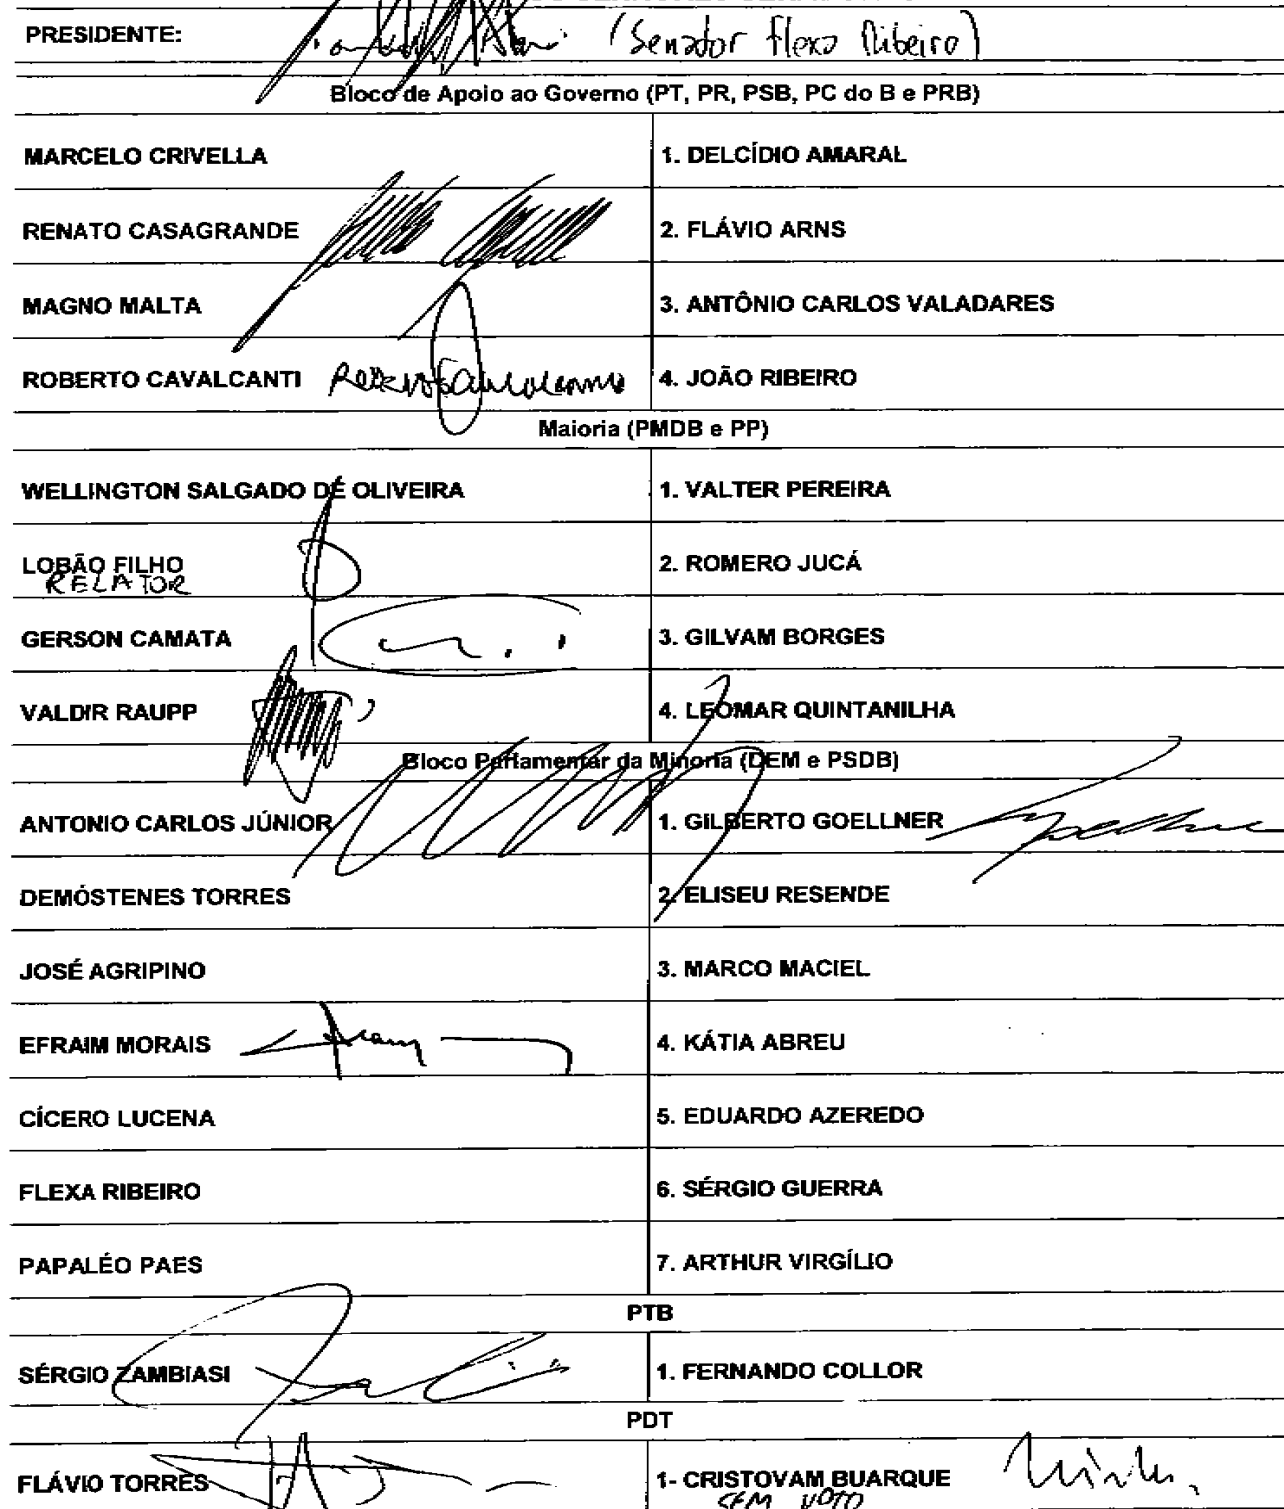 PRESIDENTE: (Senador Flexa Ribeiro)
Bloco de Apoio ao Governo (PT, PR, PSB, PC do B e PRB)
MARCELO CRIVELLA 1. DELCÍDIO AMARAL
RENATO CASAGRANDE 2. FLÁVIO ARNS
MAGNO MALTA 3. ANTÔNIO CARLOS VALADARES
ROBERTO CAVALCANTI 4. JOÃO RIBEIRO
Maioria (PMDB e PP)
WELLINGTON SALGADO DE OLIVEIRA 1. VALTER PEREIRA
LOBÃO FILHO 2. ROMERO JUCÁ
RELATOR
GERSON CAMATA 3. GILVAM BORGES
VALDIR RAUPP 4. LEOMAR QUINTANILHA
Bloco Parlamentar da Minoria (DEM e PSDB)
ANTONIO CARLOS JÚNIOR 1. GILBERTO GOELLNER
DEMÓSTENES TORRES 2. ELISEU RESENDE
JOSÉ AGRIPINO 3. MARCO MACIEL
EFRAIM MORAIS 4. KÁTIA ABREU
CÍCERO LUCENA 5. EDUARDO AZEREDO
FLEXA RIBEIRO 6. SÉRGIO GUERRA
PAPALÉO PAES 7. ARTHUR VIRGÍLIO
PTB
SÉRGIO ZAMBIASI 1. FERNANDO COLLOR
PDT
FLÁVIO TORRES 1- CRISTOVAM BUARQUE
SEM VOTO